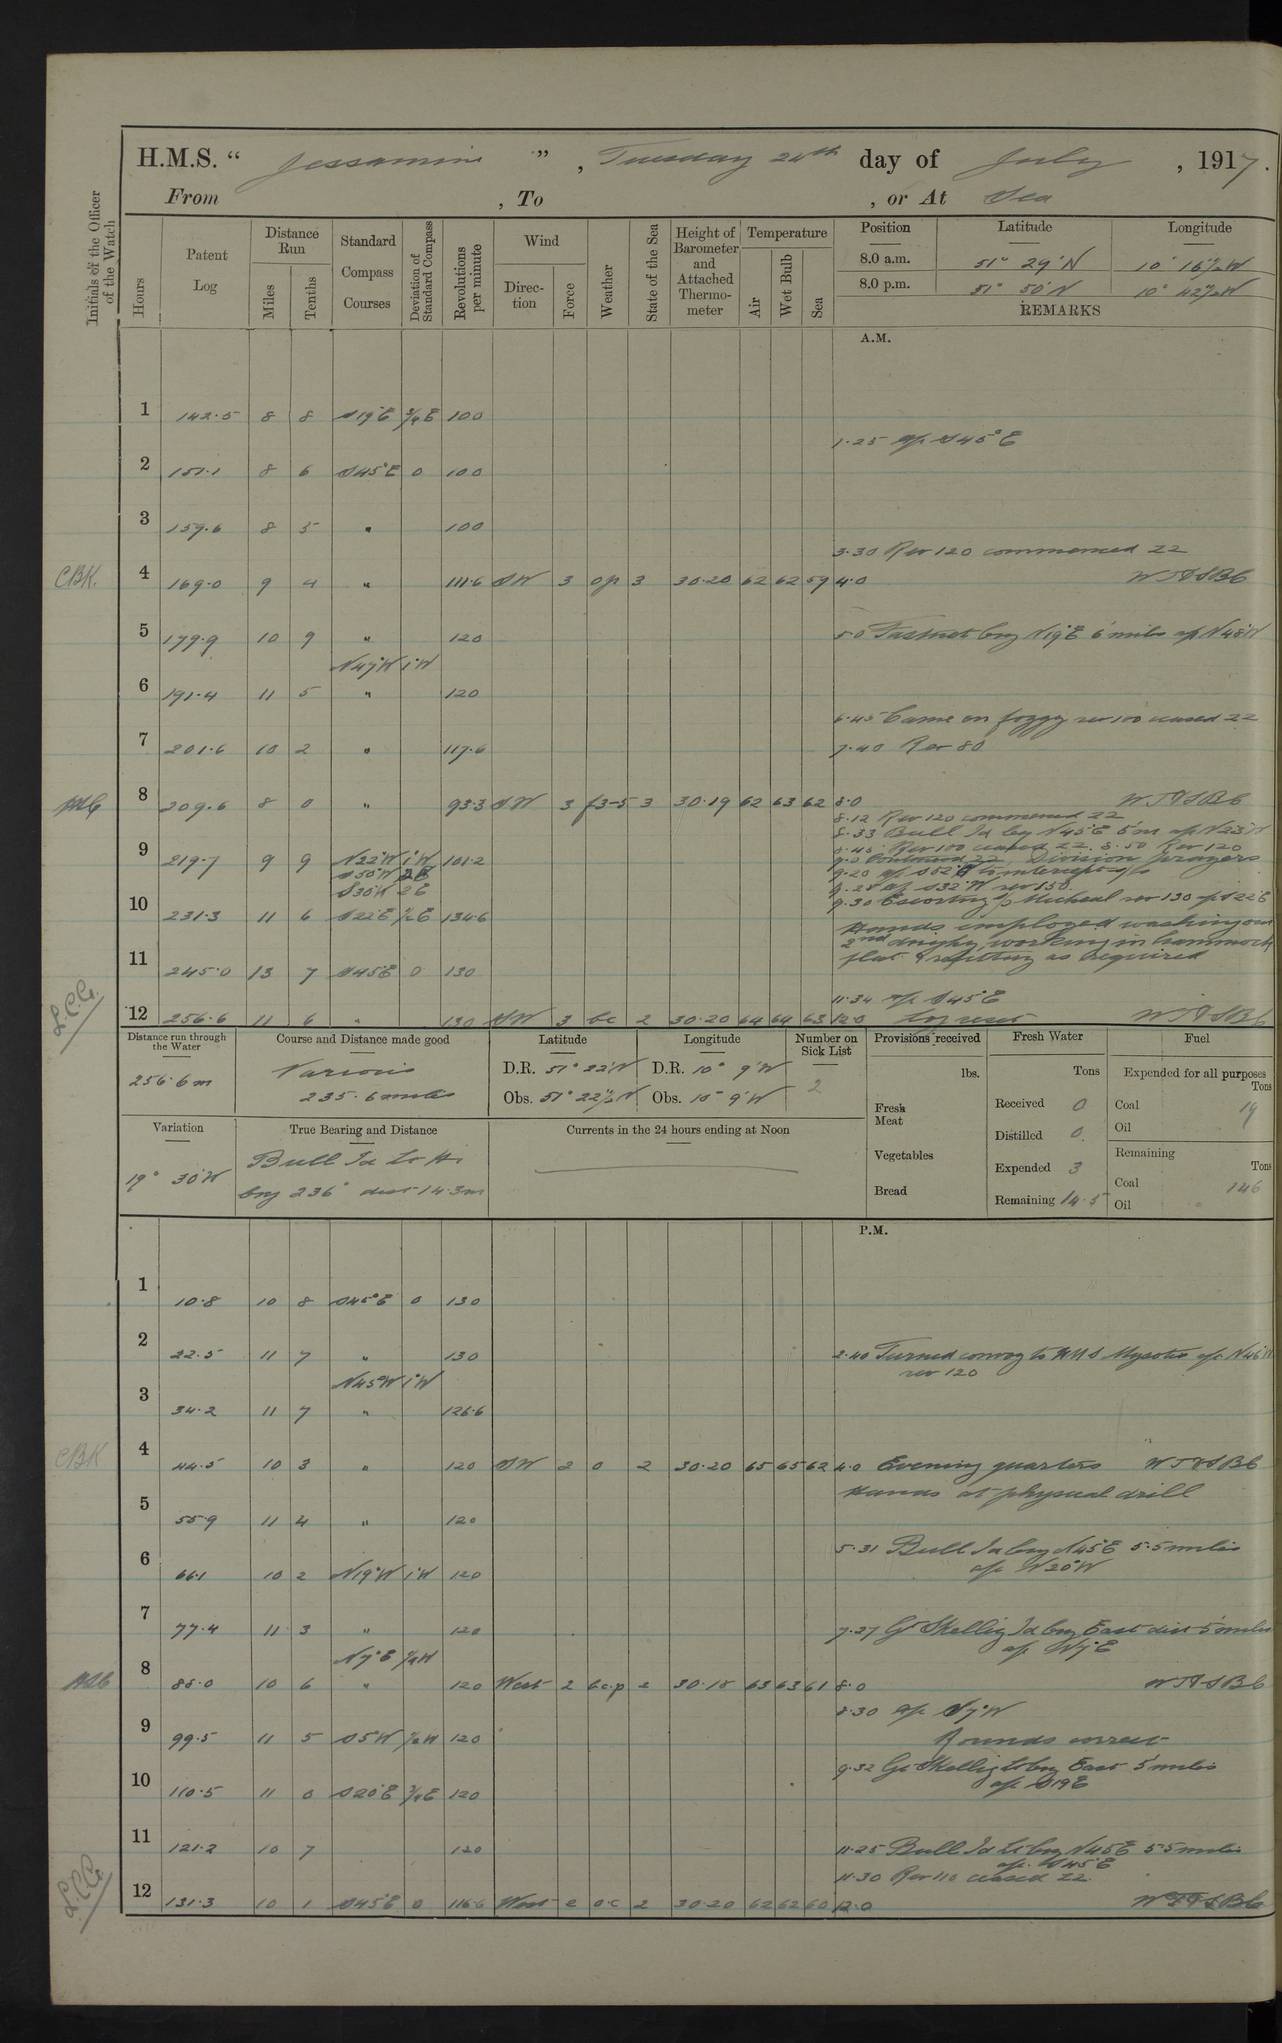 H.M.S. “ Jessamine ” , Tuesday 24th day of July , 1917.
From , To , or At Sea
Initials of the Officer of the Watch
Hours
Patent Log
Distance Run
Miles
Tenths
Standard Compass Courses
Deviation of Standard Compass
Revolutions per minute
Wind
Direction
Force
Weather
State of the Sea
Height of Barometer and Attached Thermometer
Temperature
Air
Wet Bulb
Sea
Position Latitude Longitude
8.0 a.m. 51° 29' N 10° 16½' W
8.0 p.m. 51° 50' N 10° 42½' W
REMARKS
A.M.
1 142.5 8 8 S19°E ¾E 100
1.25 a/c S45°E
2 151.1 8 6 S45°E 0 100
3 159.6 8 5 " 100
3.30 Rev 120 commenced ZZ
CBK. 4 169.0 9 4 " 111.6 SW 3 op 3 30.20 62 62 59 4.0 WTASBC
5 179.9 10 9 " 120 5.0 Fastnet brg N19°E 6 miles a/c N48°W
N47°W 1°W
6 191.4 11 5 " 120
6.45 Came on foggy rev 100 ceased ZZ
7 201.6 10 2 " 117.6 7.40 Rev 80
8 209.6 8 0 " 93.3 SW 3 f3-5 3 30.19 62 63 62 8.0 WTASBC
8.12 Rev 120 commenced ZZ
8.33 Bull Id brg N45°E 5m a/c N23°W
8.45 Rev 100 ceased ZZ. 8.50 Rev 120
9 219.7 9 9 N22°W 1°W 101.2 Division prayers
S50°W 2E 9.20 a/c S52°W to intercept
S30°W 2E 9.28 a/c S32°W rev 150.
9.30 Escorting Micheal rev 130 a/c S22°E
10 231.3 11 6 S22°E ½E 134.6 Hands employed washing out
2nd dinghy, working in hammock
11 245.0 13 7 S45E 0 130 flat & refitting as required
11.34 a/c S45°E
L.C.G. 12 256.6 11 6 " 130 SW 3 bc 2 30.20 64 64 63 12.0 WTASBC
Distance run through the Water
256.6 m
Course and Distance made good
Various
235.6 miles
Latitude
D.R. 51° 22' N
Obs. 51° 22½' N
Longitude
D.R. 10° 9' W
Obs. 10° 9' W
Number on Sick List
2
Provisions received
lbs.
Fresh Meat
Vegetables
Bread
Fresh Water
Tons
Received 0
Distilled 0
Expended 3
Remaining 14.5
Fuel
Expended for all purposes
Tons
Coal 19
Oil
Remaining
Tons
Coal 146
Oil
Variation
19° 30'W
True Bearing and Distance
Bull Id Lt Ho
brg 236° dist 14.3m
Currents in the 24 hours ending at Noon
P.M.
1 10.8 10 8 S45°E 0 130
2 22.5 11 7 " 130 2.40 Turned convoy to HMS Myosotis a/c N46°W
N45°W 1°W rev 120
3 34.2 11 7 " 126.6
CBK 4 44.5 10 3 " 120 SW 2 0 2 30.20 65 65 62 4.0 Evening quarters WTASBC
Hands at physical drill
5 55.9 11 4 " 120
5.31 Bull Id brg N45°E 5.5 miles
6 66.1 10 2 N19°W 1°W 120 a/c N20°W
7 77.4 11 3 " 120 7.27 Gt Skellig Id brg East dist 5 miles
N7°E ½W a/c N7°E
8 88.0 10 6 " 120 West 2 bcp 2 30.18 63 63 61 8.0 WTASBC
8.30 a/c S7°W
9 99.5 11 5 S5°W ½W 120 Rounds correct
9.32 Gt Skellig lt brg East 5 miles
10 110.5 11 0 S20°E ¾E 120 a/c S19E
11 121.2 10 7 120 11.25 Bull Id lt brg N45E 5.5 miles
a/c S45°E
11.30 Rev 110 ceased ZZ
L.C.G. 12 131.3 10 1 S45E 0 116.6 West 2 o.c 2 30.20 62 62 60 12.0 WTASBC